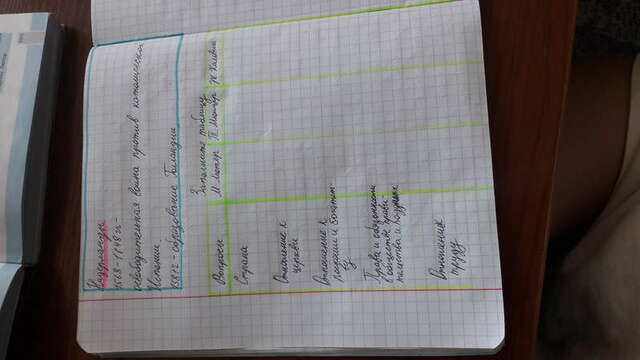 Нидерланды
1568-1648 гг-
освободительная война против католической
Испании.
1581г-образование Голландии
Заполните таблицу
Вопросы М. Лютер Т. Мюнцер Ж. Кальвин
Страна
Отношение к
церкви
Отношение к
роскоши и богатст-
ву
Права и обязонности
в обществе прави-
тельства и
Отношения
труду